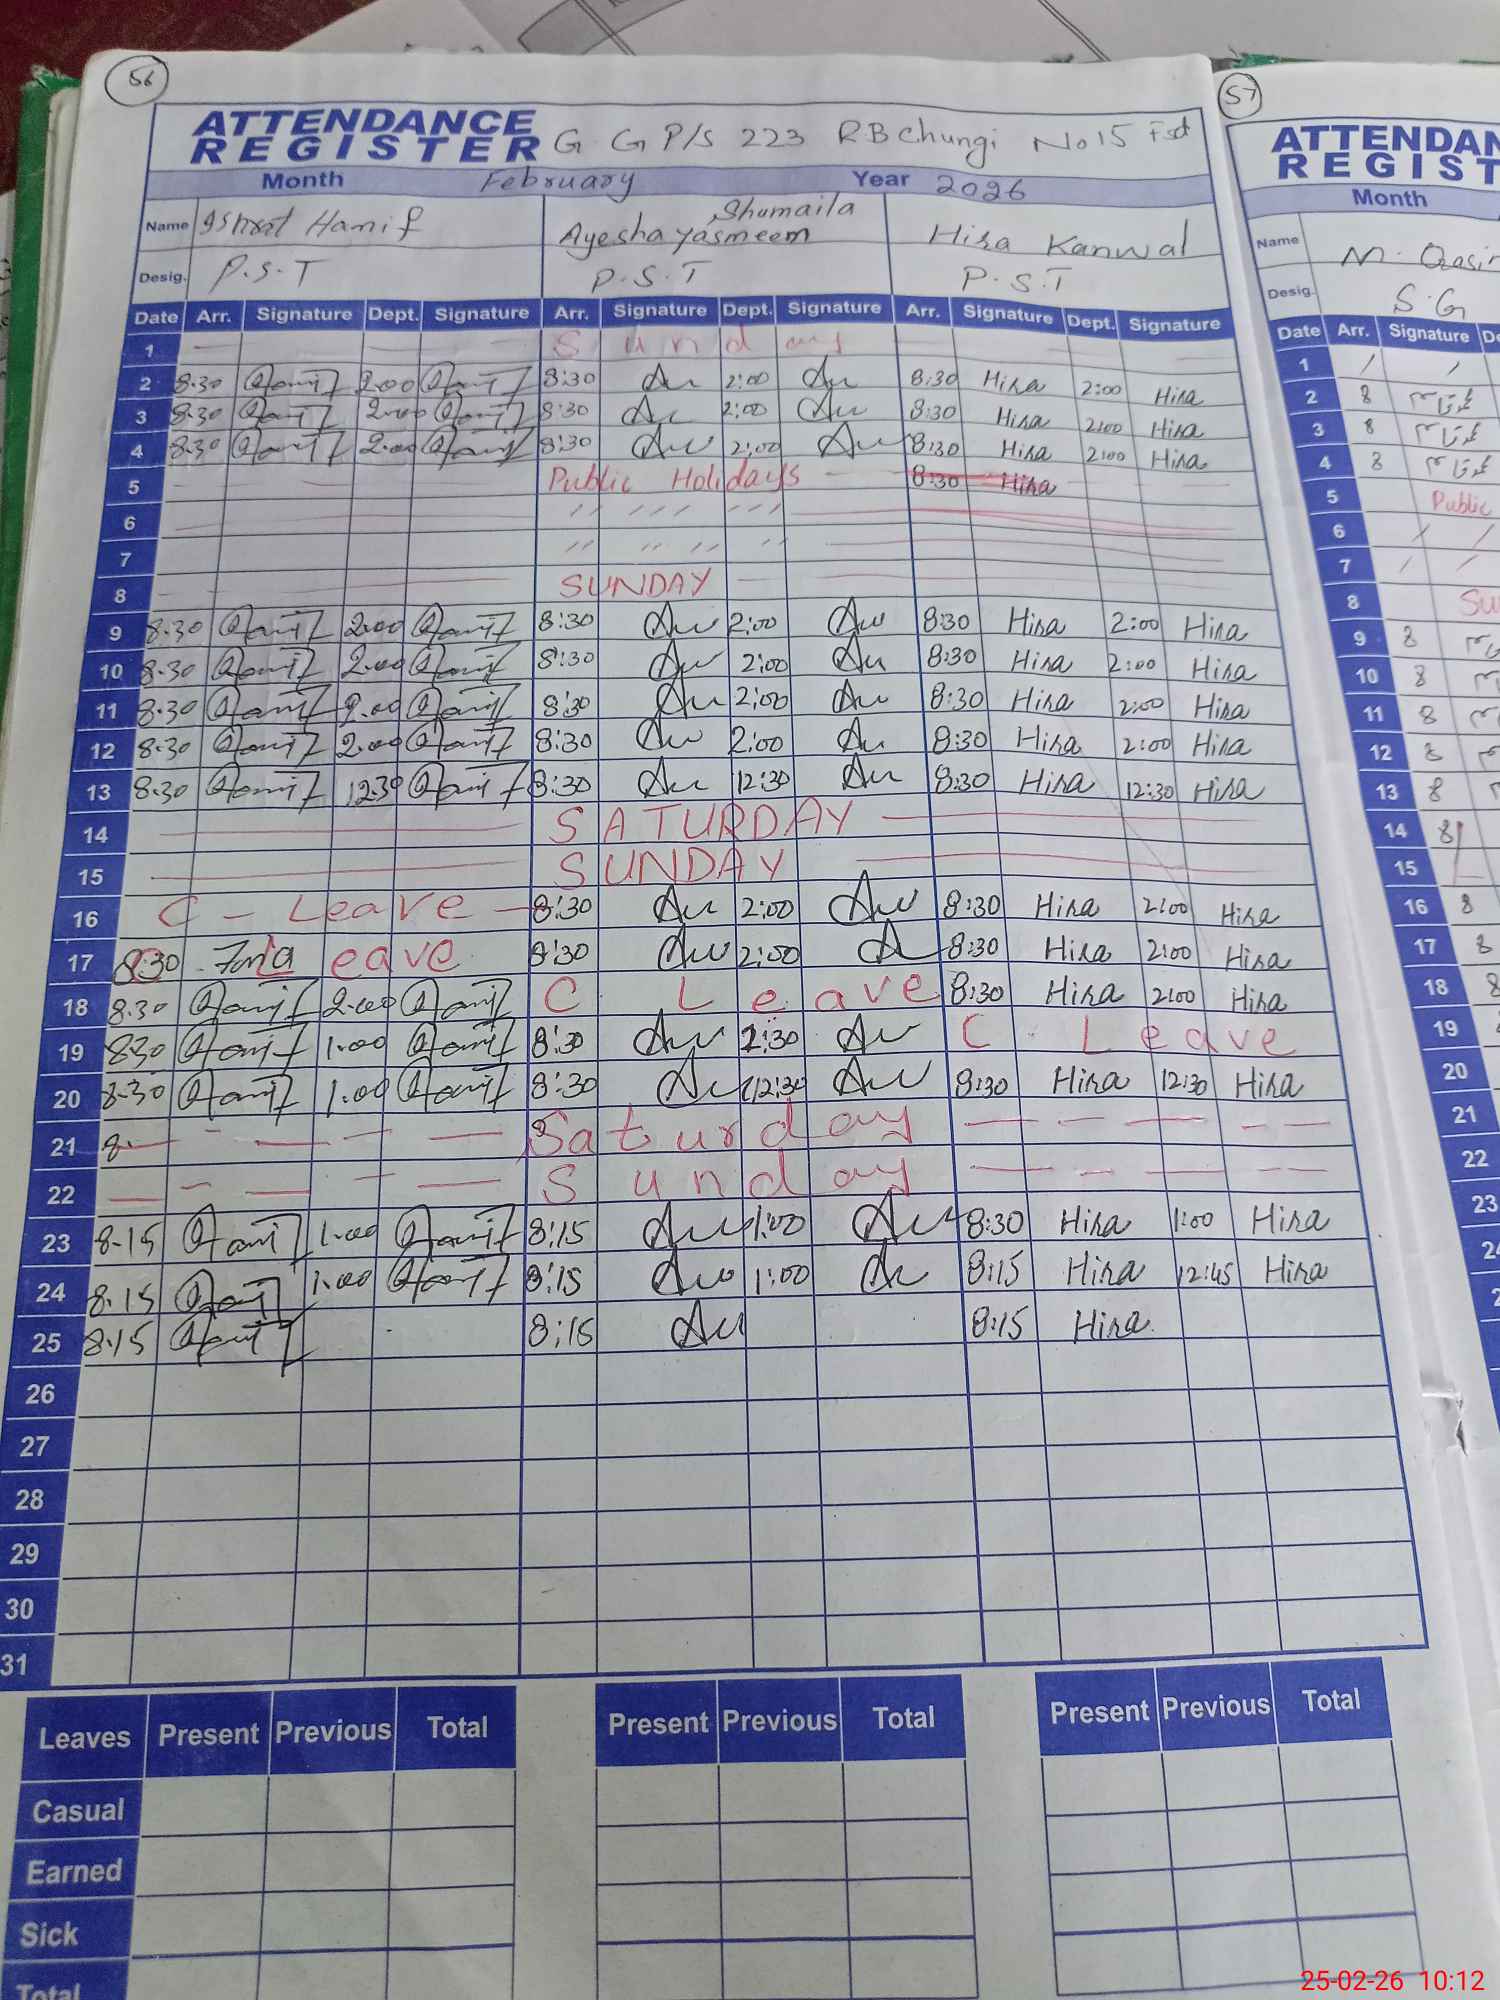 56
ATTENDANCE
REGISTER G. G P/S 223 RB Chungi No 15 Fsd
Month February Year 2026
Name Ishrat Hanif Ayesha Shumaila Yasmeem Hira Kanwal
Desig. P.S.T P.S.T P.S.T
Date Arr. Signature Dept. Signature Arr. Signature Dept. Signature Arr. Signature Dept. Signature
1 Sunday
2 8.30 Hanif 2.00 Hanif 8:30 2:00 8:30 Hira 2:00 Hira
3 8.30 Hanif 2.00 Hanif 8:30 2:00 8:30 Hira 2:00 Hira
4 8.30 Hanif 2.00 Hanif 8:30 2:00 8:30 Hira 2:00 Hira
5 Public Holidays 8:30 Hira
6 " " "
7 " " "
8 SUNDAY
9 8.30 Hanif 2.00 Hanif 8:30 2:00 8:30 Hira 2:00 Hira
10 8.30 Hanif 2.00 Hanif 8:30 2:00 8:30 Hira 2:00 Hira
11 8.30 Hanif 2.00 Hanif 8:30 2:00 8:30 Hira 2:00 Hira
12 8.30 Hanif 2.00 Hanif 8:30 2:00 8:30 Hira 2:00 Hira
13 8.30 Hanif 12.30 Hanif 8:30 12:30 8:30 Hira 12:30 Hira
14 SATURDAY
15 SUNDAY
16 C - Leave 8:30 2:00 8:30 Hira 2:00 Hira
17 8:30 Leave 8:30 2:00 8:30 Hira 2:00 Hira
18 8.30 Hanif 2.00 Hanif C Leave 8:30 Hira 2:00 Hira
19 8.30 Hanif 1.00 Hanif 8:30 2:30 C Leave
20 8.30 Hanif 1.00 Hanif 8:30 12:30 8:30 Hira 12:30 Hira
21 8. Saturday
22 Sunday
23 8.15 Hanif 1.00 Hanif 8:15 1:00 8:30 Hira 1:00 Hira
24 8.15 Hanif 1.00 Hanif 8:15 1:00 8:15 Hira 12:45 Hira
25 8.15 Hanif 8:15 8:15 Hira
26
27
28
29
30
31
Leaves Present Previous Total Present Previous Total Present Previous Total
Casual
Earned
Sick
Total
57
ATTENDAN
REGIST
Month
Name M. Qasim
Desig. S.G
Date Arr. Signature De
1
2 8
3 8
4 8
5 Public
6
7
8 Su
9 8
10 8
11 8
12 8
13 8
14 8
15
16 8
17 8
18 8
19
20
21
22
23
25-02-26 10:12